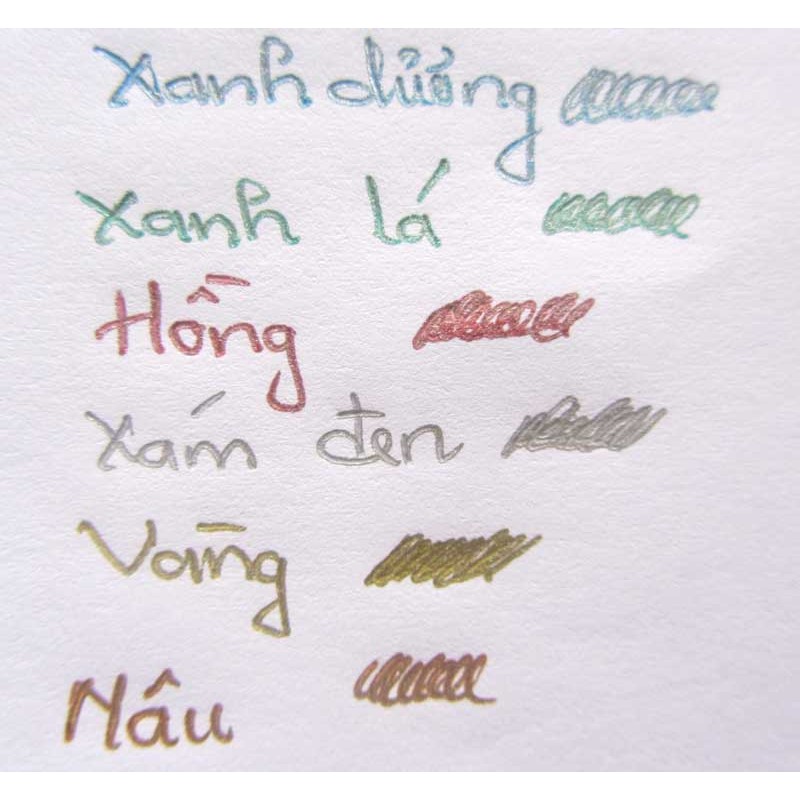 Xanh dương
Xanh lá
Hồng
Xám đen
Vàng
Nâu